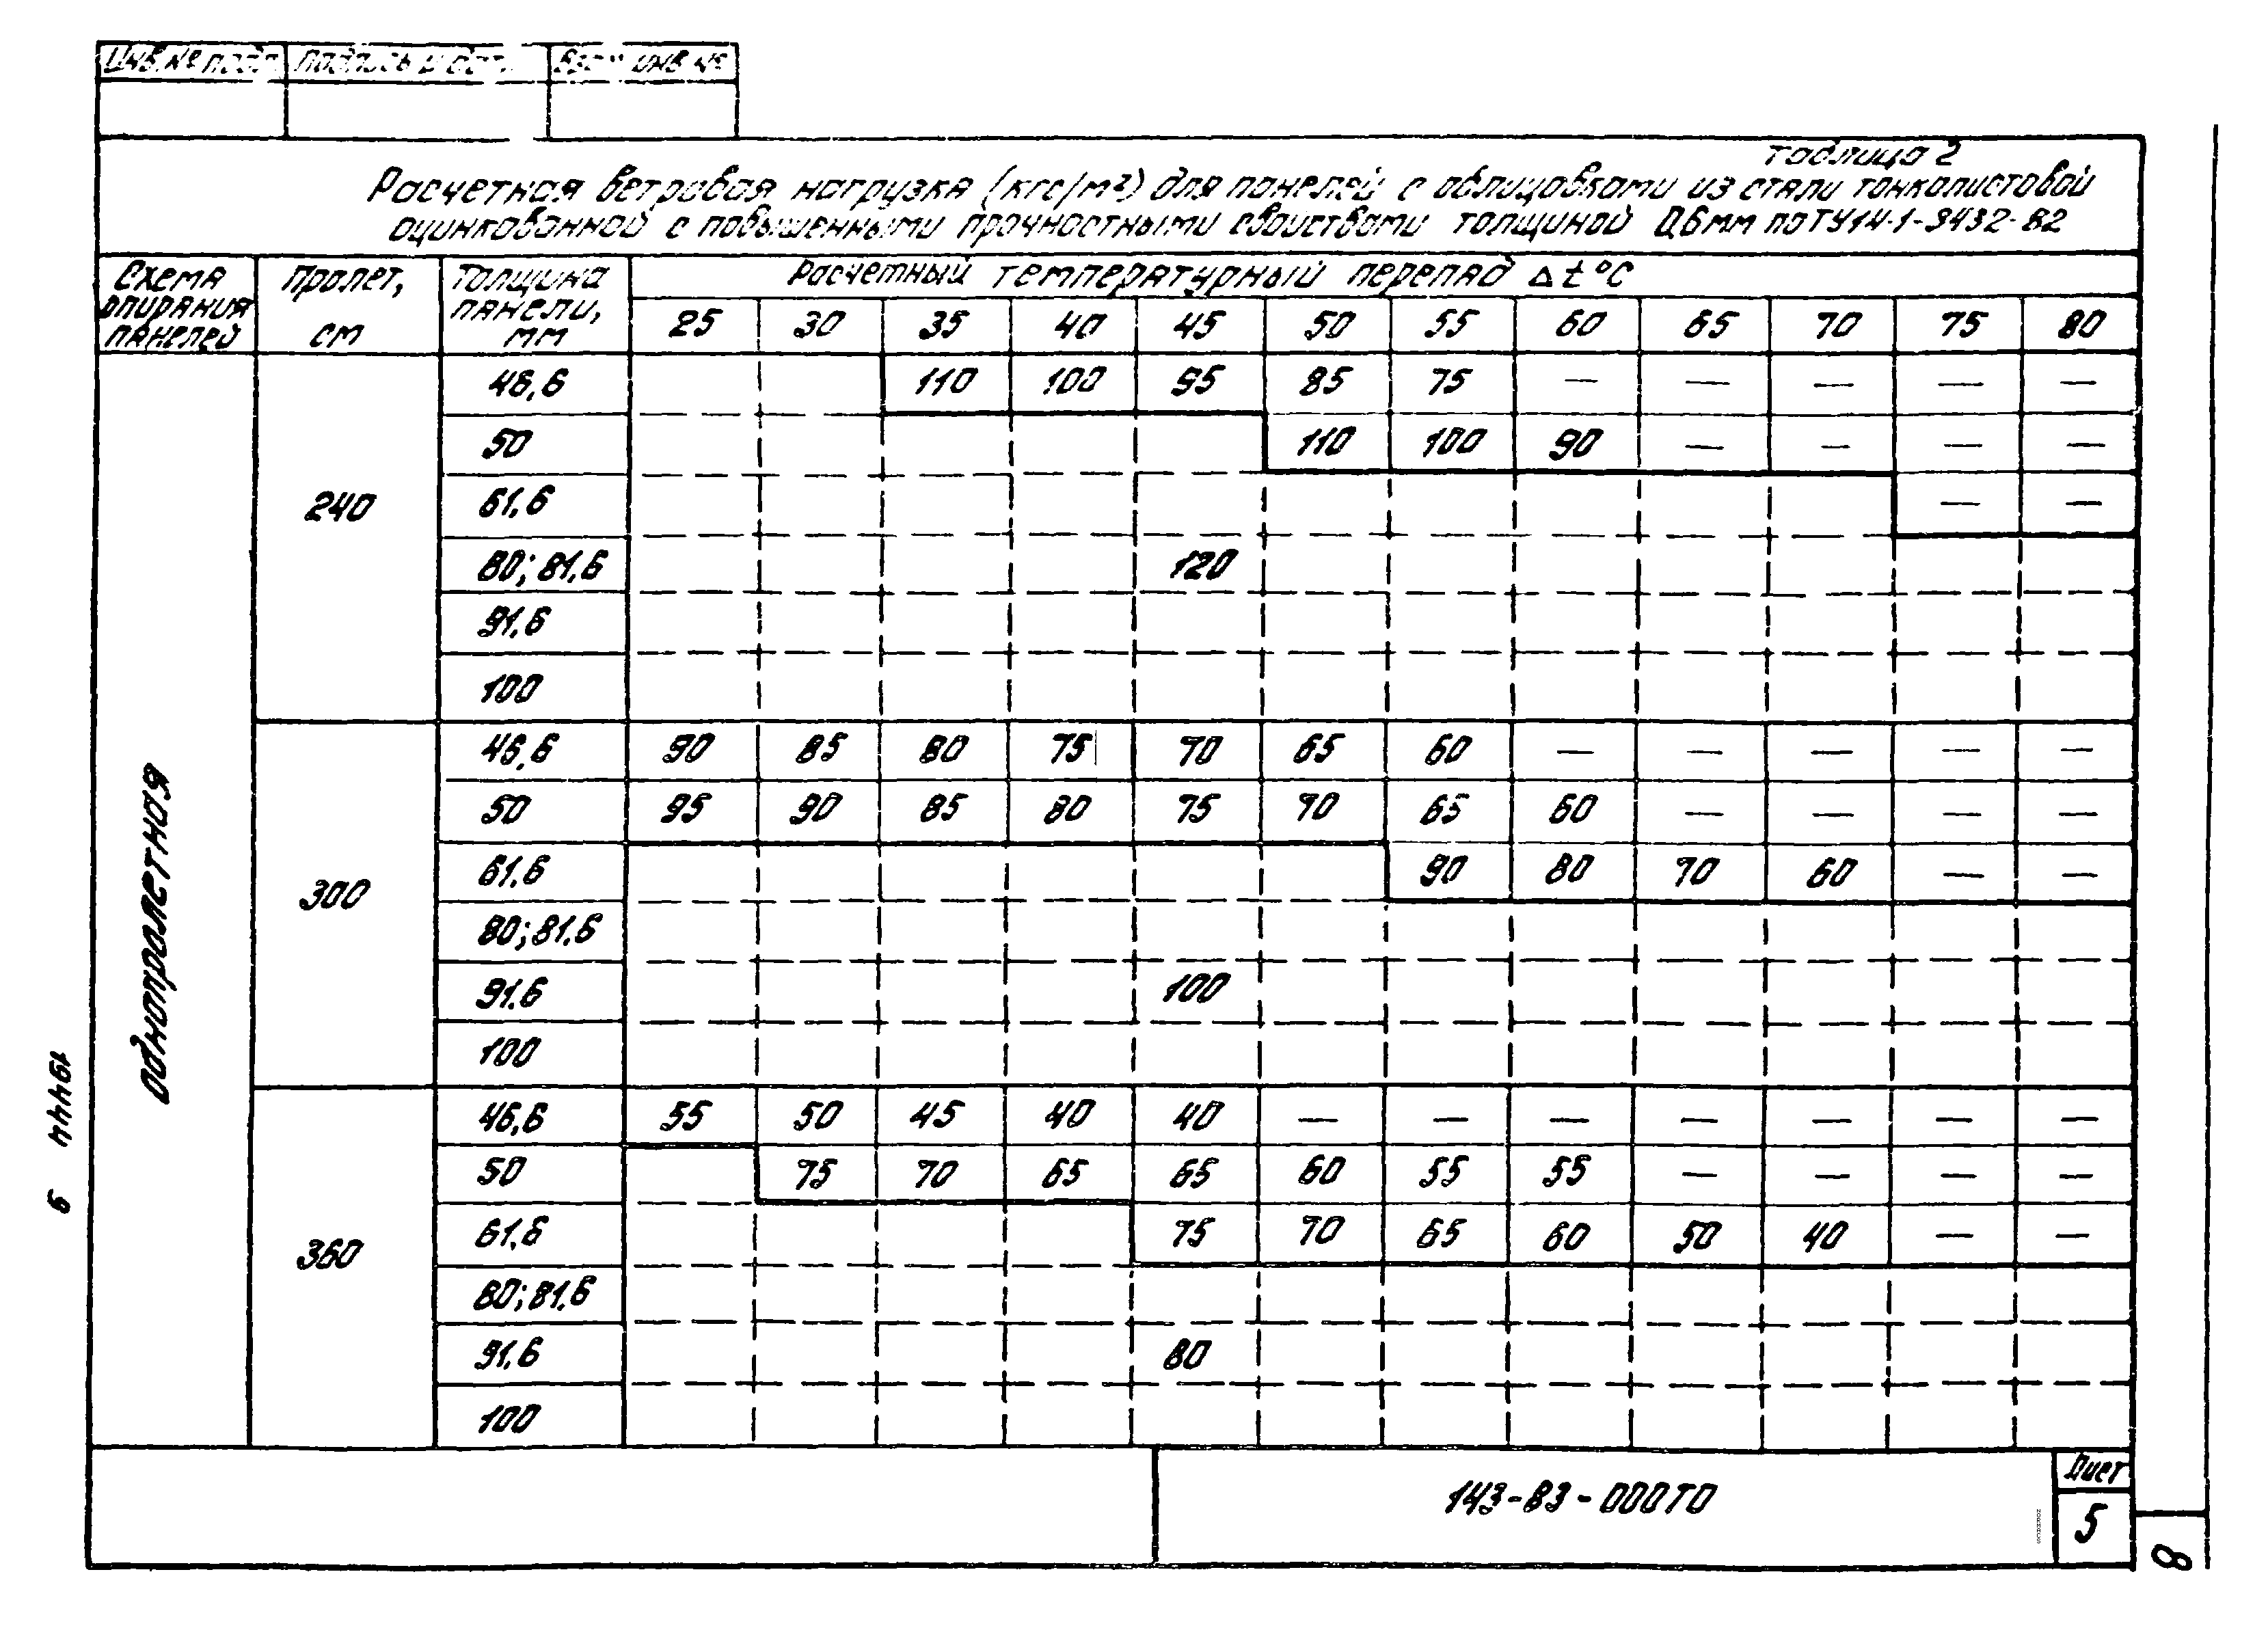 Инв.№ подл. Подпись и дата Взам инв.№
Таблица 2
Расчетная ветровая нагрузка (кгс/м²) для панелей с облицовками из стали тонколистовой
оцинкованной с повышенными прочностными свойствами толщиной 0,6 мм по ТУ14-1-3432-82
Схема опирания панелей Пролет, см Толщина панели, мм Расчетный температурный перепад Δt°C
25 30 35 40 45 50 55 60 65 70 75 80
Однопролетная
240
46,6 110 100 95 85 75 — — — — —
50 110 100 90 — — — —
61,6 — —
80; 81,6 120
91,6
100
300
46,6 90 85 80 75 70 65 60 — — — — —
50 95 90 85 80 75 70 65 60 — — — —
61,6 90 80 70 60 — —
80; 81,6
91,6 100
100
360
46,6 55 50 45 40 40 — — — — — — —
50 75 70 65 65 60 55 55 — — — —
61,6 75 70 65 60 50 40 — —
80; 81,6
91,6 80
100
143-83-000ТО
Лист
5
8
19444 9